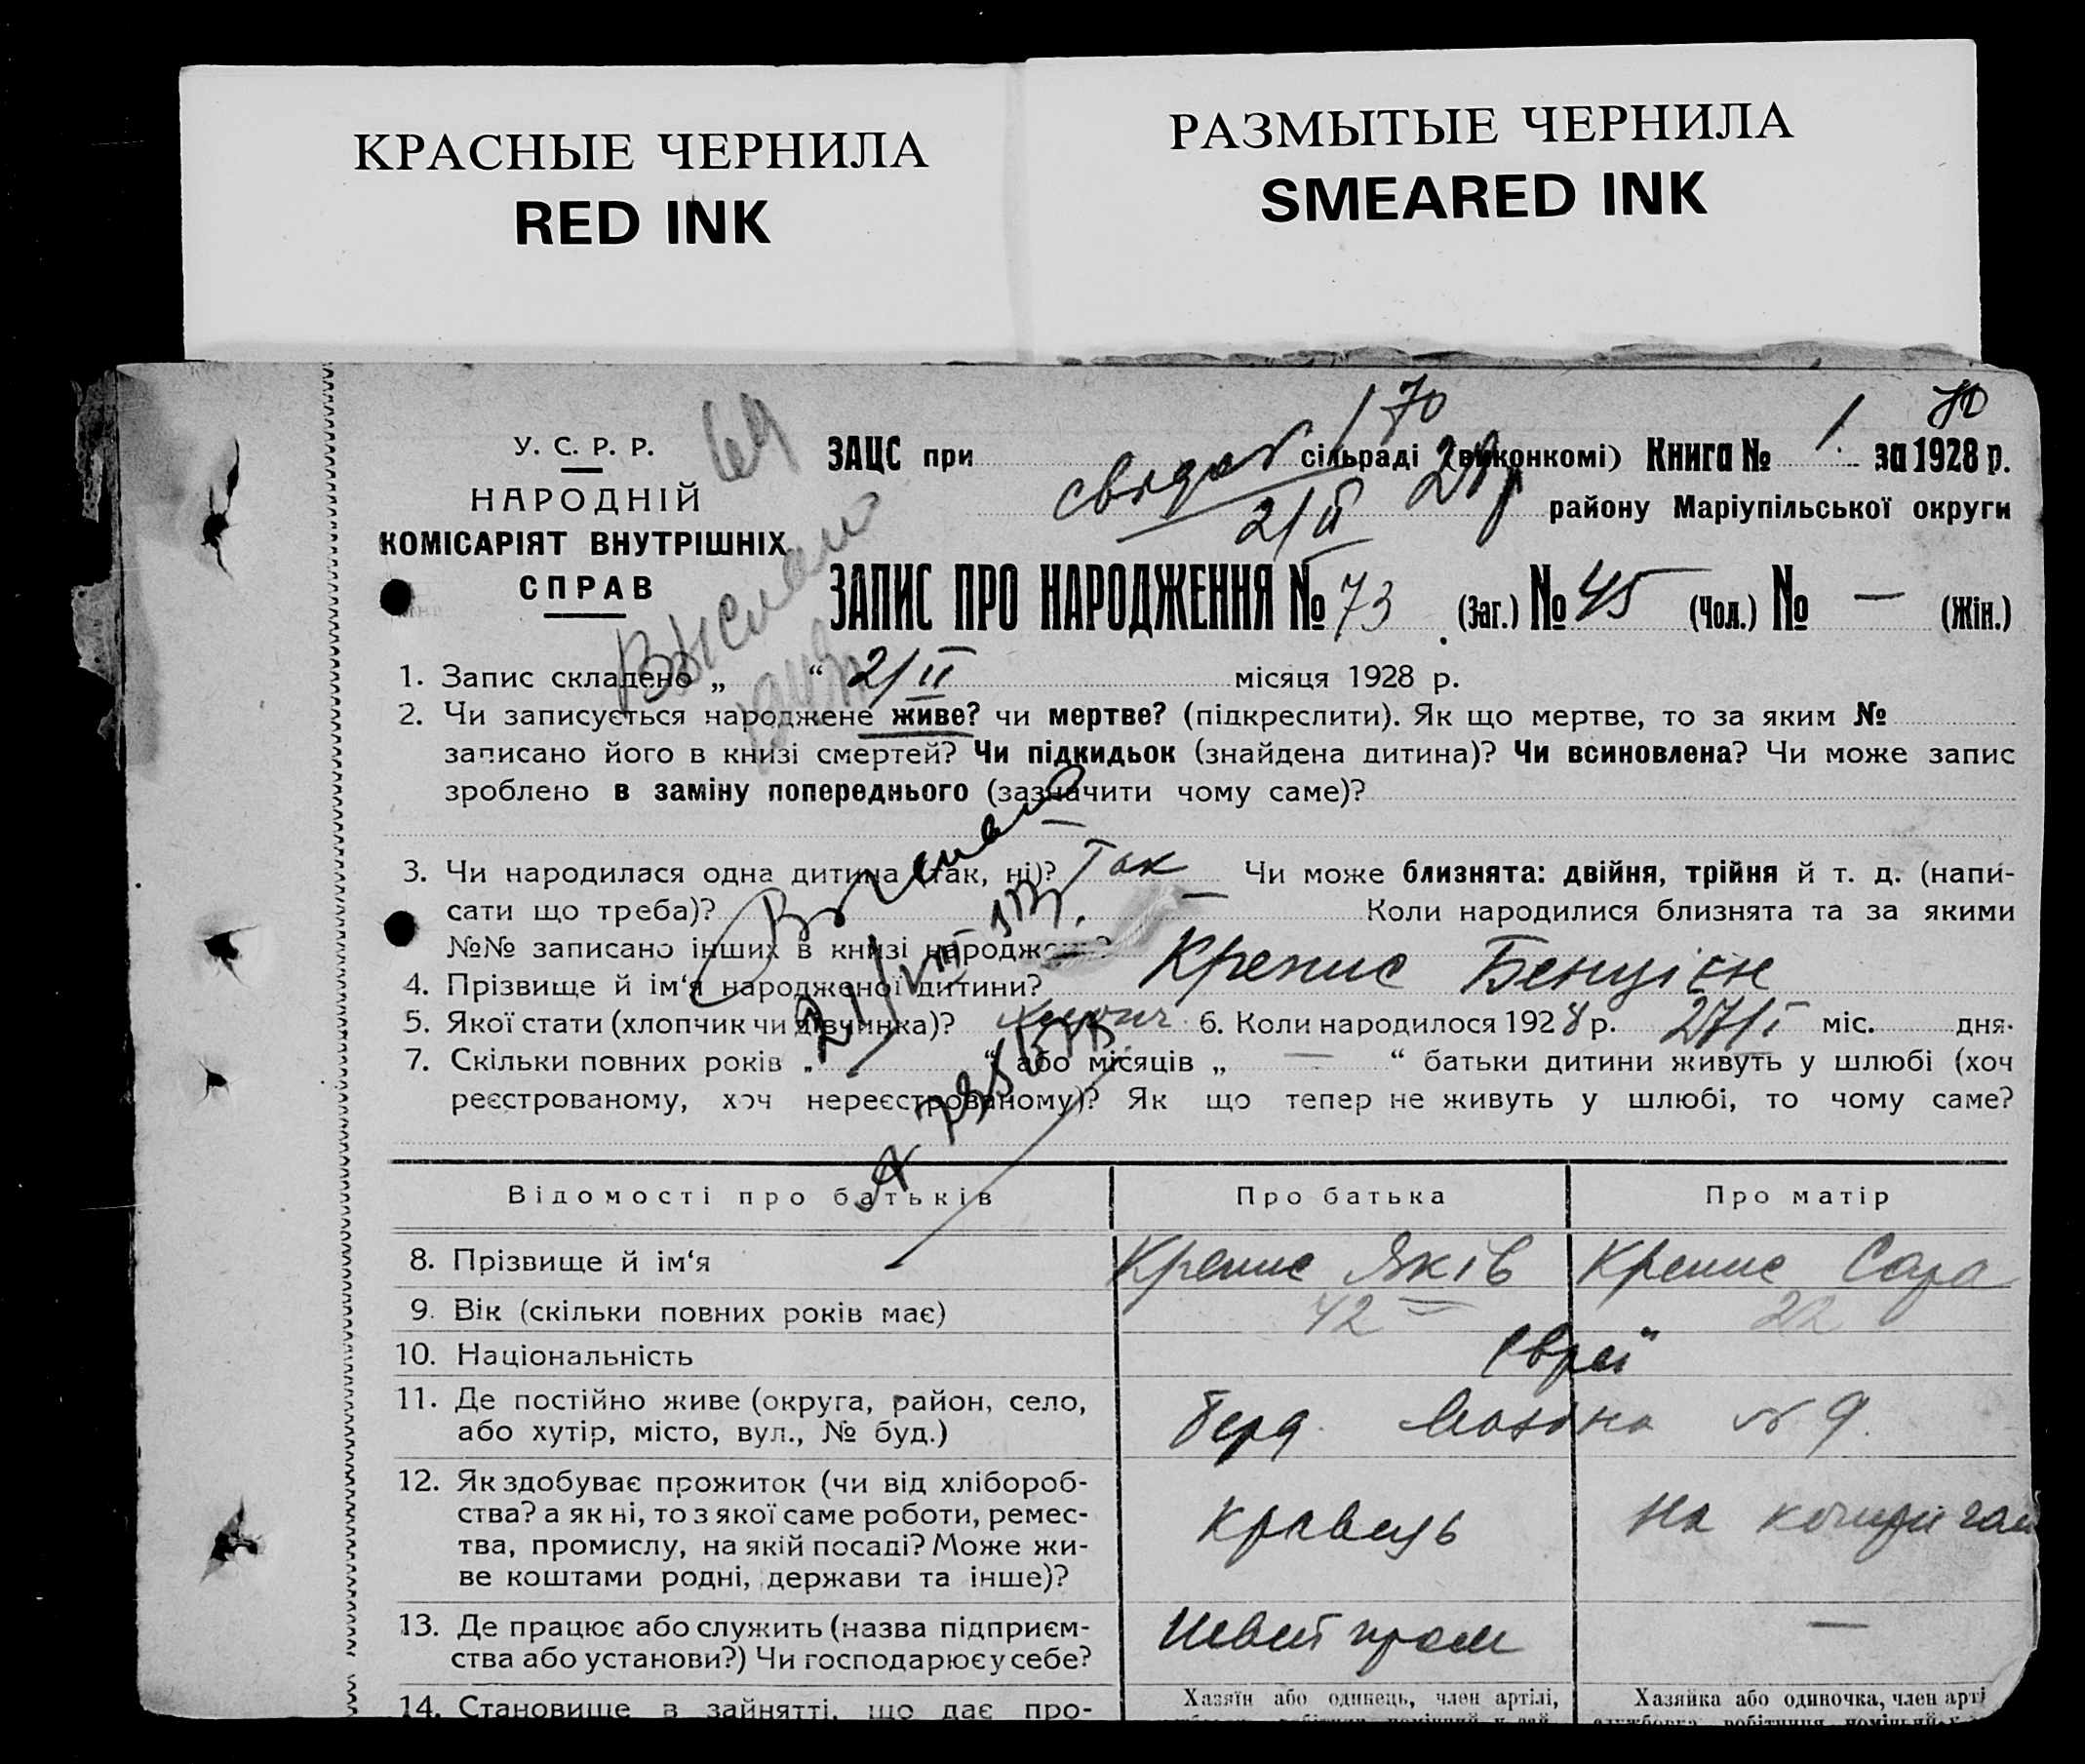 КРАСНЫЕ ЧЕРНИЛА
RED INK
РАЗМЫТЫЕ ЧЕРНИЛА
SMEARED INK
70
70
69
У. С. Р. Р.
НАРОДНІЙ
КОМІСАРІЯТ ВНУТРІШНІХ
СПРАВ
ЗАЦС при сільраді (виконкомі) Книга № 1. за 1928 р.
21/II 28р
району Маріупільської округи
ЗАПИС ПРО НАРОДЖЕННЯ № 73 (Заг.) № 45 (Чол.) № — (Жін.)
Выслано
1. Запис складено „ “ 2/II місяця 1928 р.
2. Чи записується народжене живе? чи мертве? (підкреслити). Як що мертве, то за яким №
записано його в книзі смертей? Чи підкидьок (знайдена дитина)? Чи всиновлена? Чи може запис
зроблено в заміну попереднього (зазначити чому саме)?
3. Чи народилася одна дитина (так, ні)? Так Чи може близнята: двійня, трійня й т. д. (напи-
сати що треба)? — Коли народилися близнята та за якими
№№ записано інших в книзі народжень?
Выслано
4. Прізвище й ім‘я народженої дитини? Крепис Бенціен
5. Якої стати (хлопчик чи дівчинка)? хлопч 6. Коли народилось 1928 р. 27/I міс. дня.
7. Скільки повних років „ “ або місяців „ — “ батьки дитини живуть у шлюбі (хоч
реєстрованому, хоч нереєстрованому)? Як що тепер не живуть у шлюбі, то чому саме?
Відомості про батьків Про батька Про матір
8. Прізвище й ім‘я Крепис Яків Крепис Сара
9. Вік (скільки повних років має) 42 22
10. Національність Євреї
11. Де постійно живе (округа, район, село,
або хутір, місто, вул., № буд.)
Берд. № 9.
12. Як здобуває прожиток (чи від хлібороб-
ства? а як ні, то з якої саме роботи, ремес-
тва, промислу, на якій посаді? Може жи-
ве коштами родні, держави та інше)?
кравець
на
13. Де працює або служить (назва підприєм-
ства або установи?) Чи господарює у себе?
Швейпром —
14. Становище в зайнятті, що дає про-
Хазяїн або одинець, член артілі,
Хазяйка або одиночка, член арті